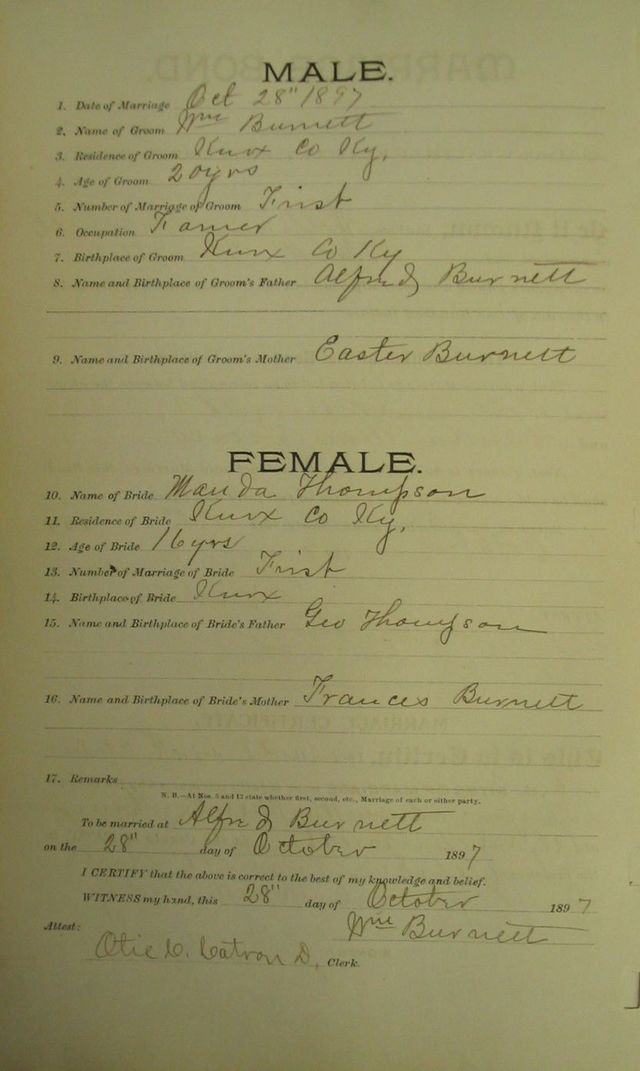 MALE.
1. Date of Marriage Oct 28" 1897
2. Name of Groom Wm Burnett
3. Residence of Groom Knox Co Ky,
4. Age of Groom 20yrs
5. Number of Marriage of Groom First
6. Occupation Famer
7. Birthplace of Groom Knox Co Ky
8. Name and Birthplace of Groom's Father Alfred Burnett
9. Name and Birthplace of Groom's Mother Easter Burnett
FEMALE.
10. Name of Bride Manda Thompson
11. Residence of Bride Knox Co Ky,
12. Age of Bride 16yrs
13. Number of Marriage of Bride First
14. Birthplace of Bride Knox
15. Name and Birthplace of Bride's Father Geo Thompson
16. Name and Birthplace of Bride's Mother Frances Burnett
17. Remarks
N. B.—At Nos. 5 and 13 state whether first, second, etc., Marriage of each or either party.
To be married at Alfred Burnett
on the 28" day of October 1897
I CERTIFY that the above is correct to the best of my knowledge and belief.
WITNESS my hand, this 28" day of October 1897
Wm Burnett
Attest:
Catron D, Clerk.